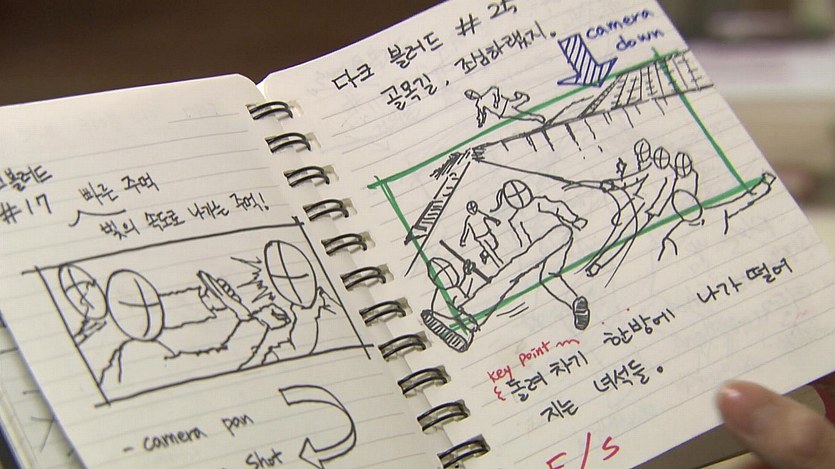 블러드
#17
주먹
빛의 속도로 나가는 주먹!
- camera pan
shot
다크 블러드 #25
골목길, 조심하랬지.
camera
down
key point
돌려차기 한방에 나가 떨어
지는 녀석들.
F/s